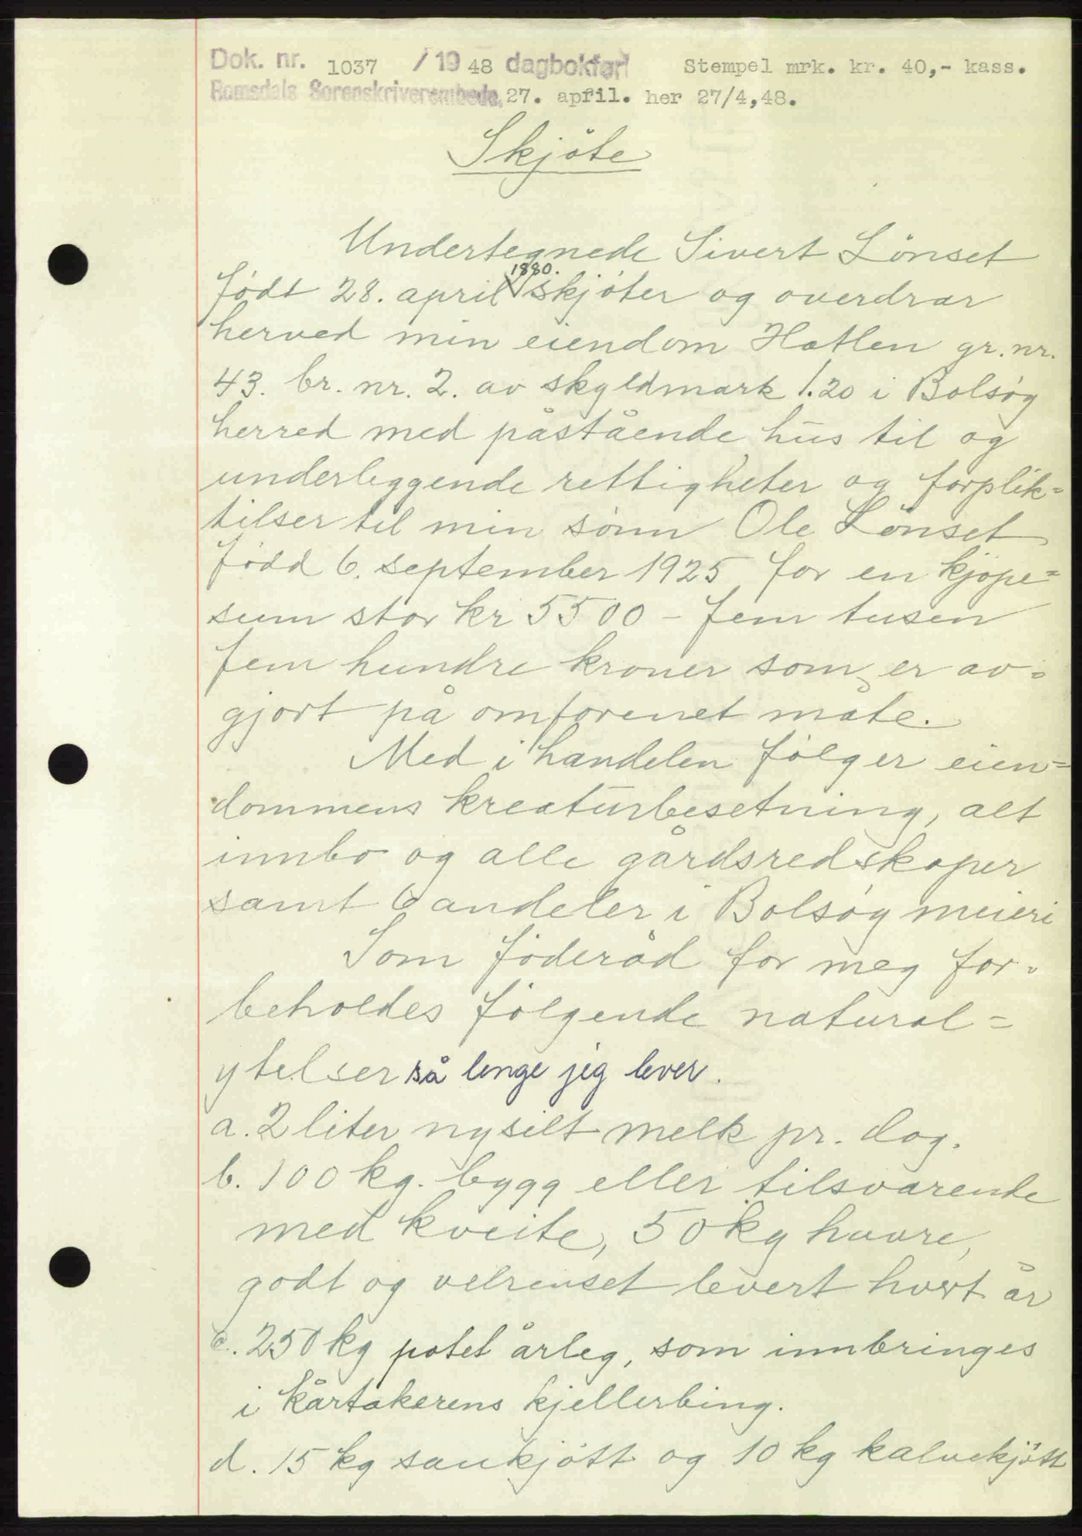 Dok. nr. 1037 / 19 48 dagbokført Stempel mrk. kr. 40,- kass.
Romsdals Sorenskriverembede, 27. april. her 27/4,48.
Skjöte
Undertegnede Sivert Lönset
1880.
født 28. april skjöter og overdrar
herved min eiendom Hatlen gr. nr.
43. br. nr. 2. av skyldmark 1.20 i Bolsöy
herred med påstående hus til og
underliggende rettigheter og forplik=
tilser til min sönn Ole Lönset
född 6. september 1925 for en kjöpe=
sum stor kr 5500 - fem tusen
fem hundre kroner som er av=
gjort på omforenet måte.
Med i handelen fölger eien=
dommens kreaturbesetning, alt
innbo og alle gårdsredskaper
samt 6 andeler i Bolsöy meieri
Som föderåd for meg for=
beholdes fölgende natural=
ytelser så lenge jeg lever.
a. 2 liter nysilt melk pr. dag.
b. 100 kg. bygg eller tilsvarende
med kveite, 50 kg havre,
godt og velrenset levert hvert år
c. 250 kg potet årleg, som innbringes
i kårtakerens kjellerbing.
d. 15 kg saukjött og 10 kg kalvekjött